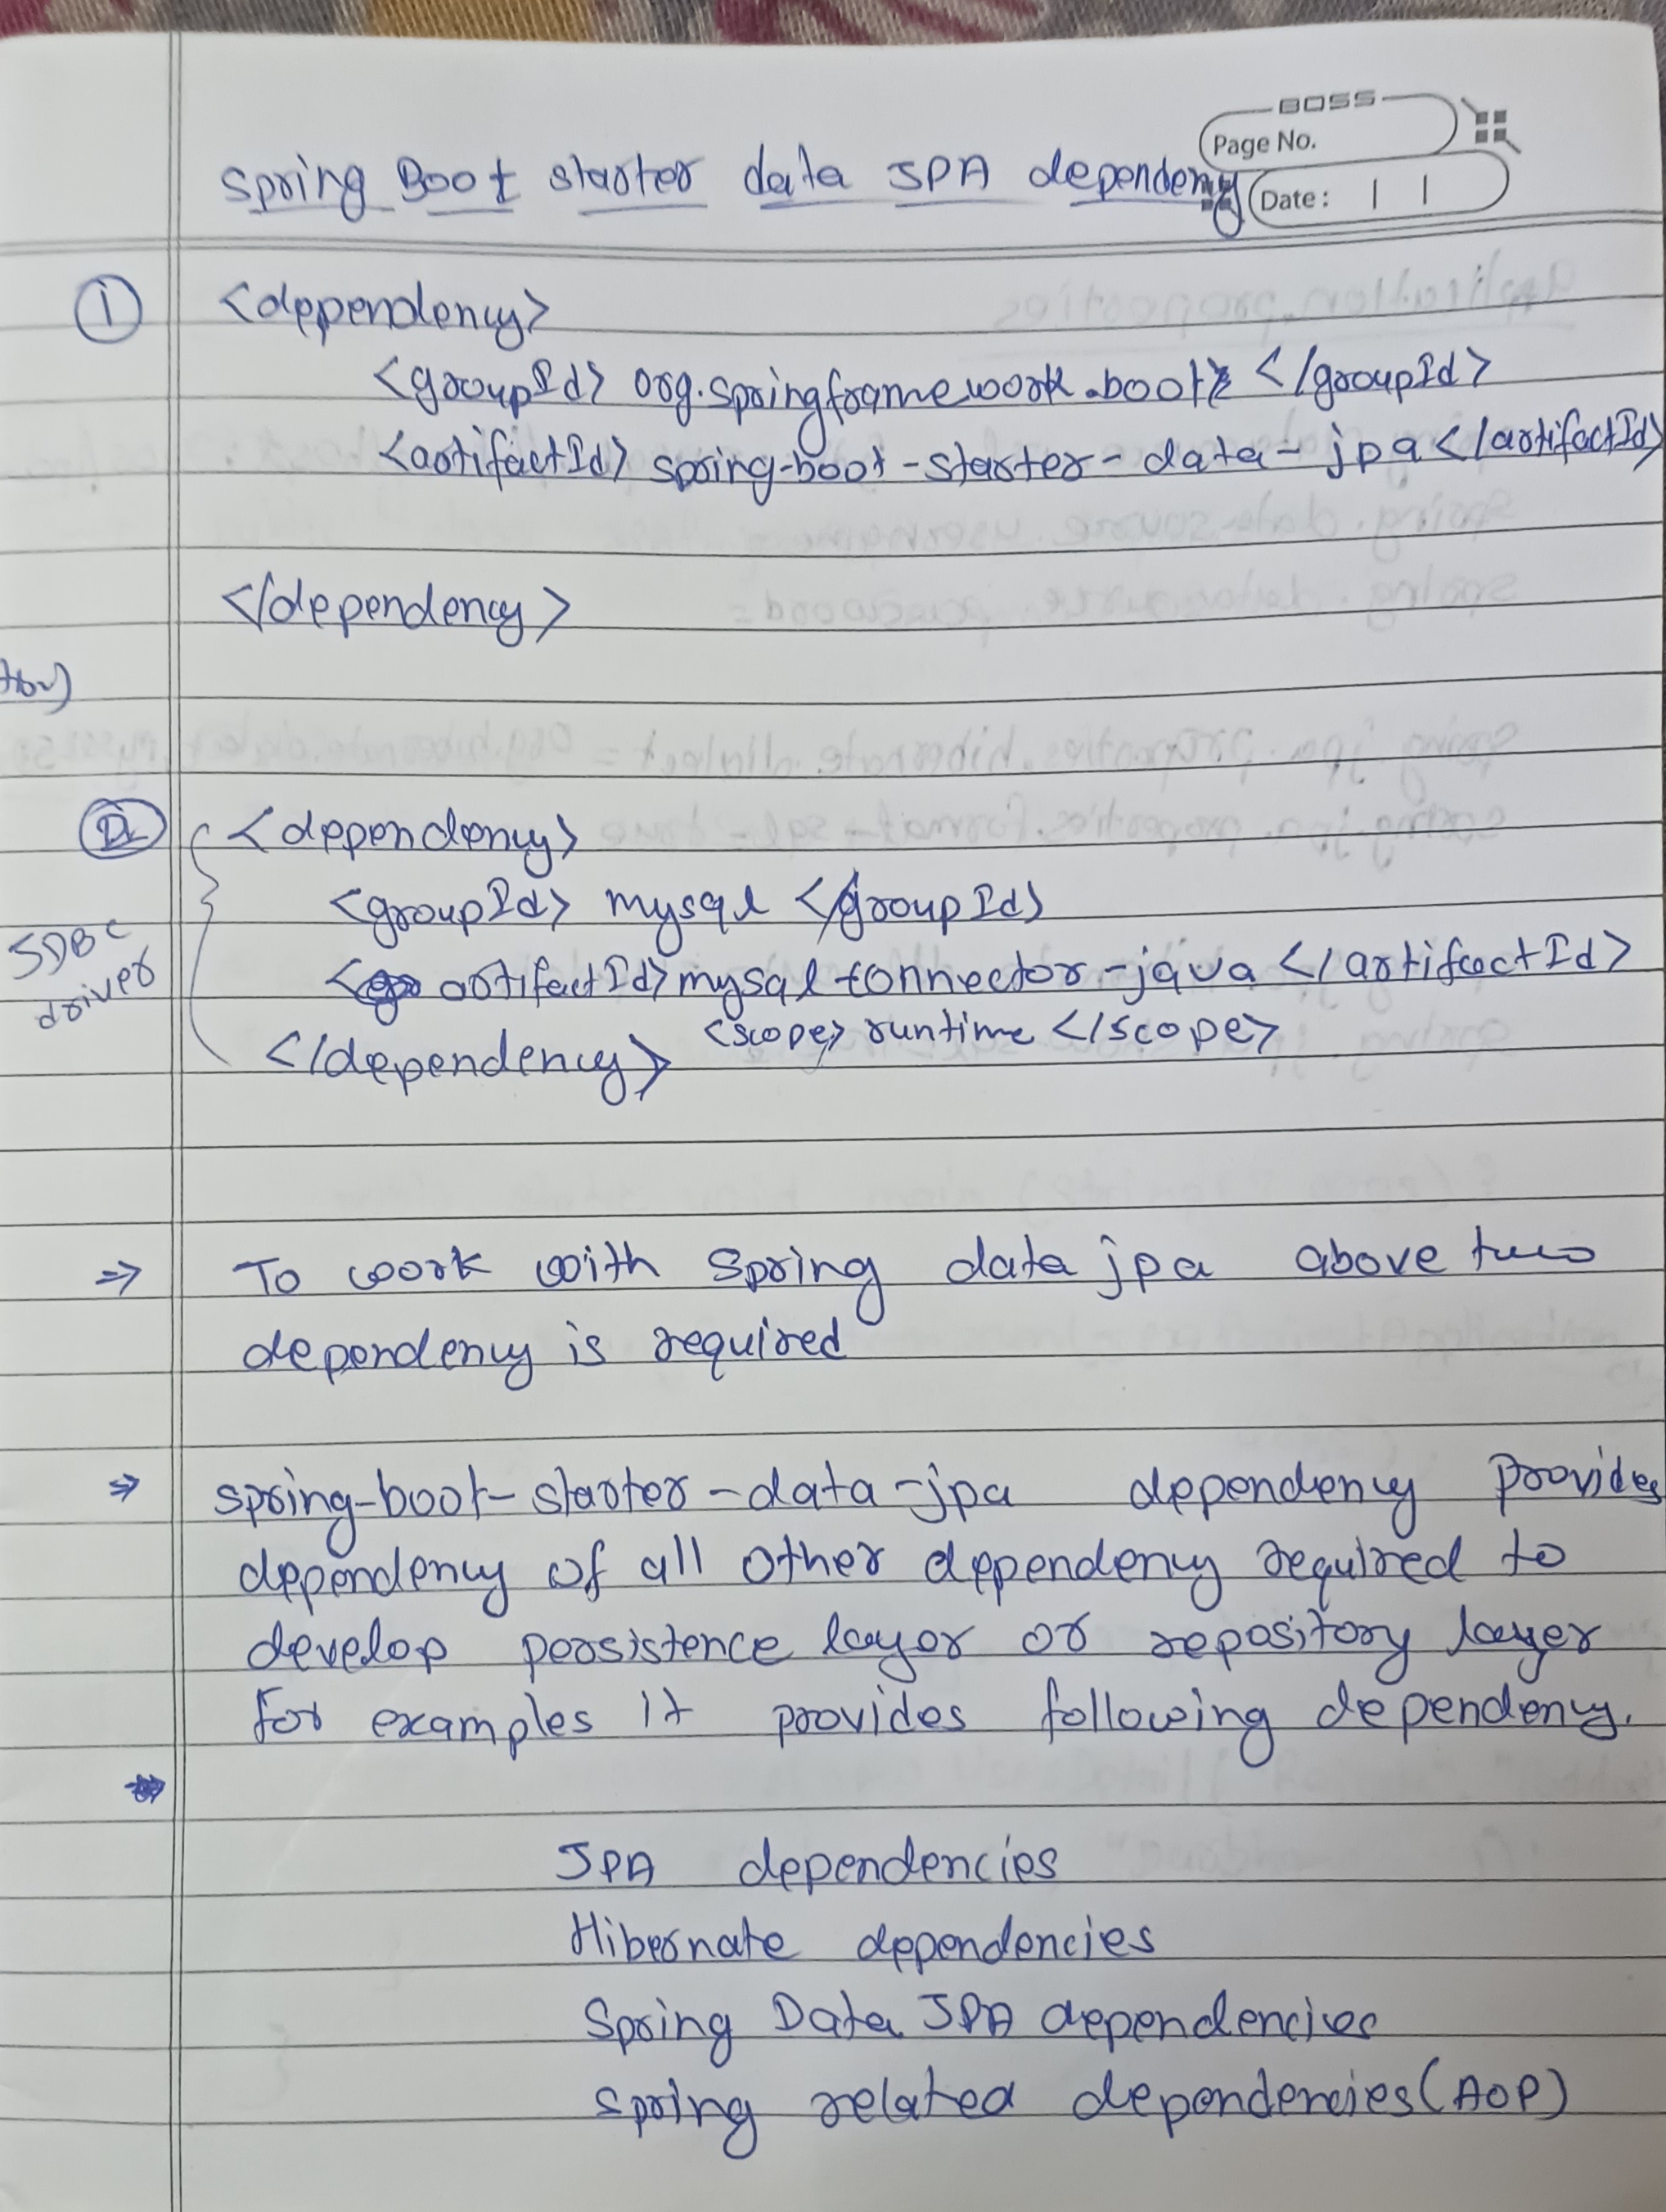 BOSS
Page No.
Date :
Spring Boot starter data JPA dependeny
① <dependency>
<groupId> org.springframework.boot </groupId>
<artifactId> spring-boot-starter-data-jpa </artifactId>
</dependency>
② <dependency>
<groupId> mysql </groupId>
JDBC driver
<artifactId> mysql connector-java </artifactId>
<scope> runtime </scope>
</dependency>
⇒ To work with Spring data jpa above two
dependency is required
⇒ spring-boot-starter-data-jpa dependency provides
dependency of all other dependency required to
develop persistence layer or repository layer
for examples It provides following dependency.
JPA dependencies
Hibernate dependencies
Spring Data JPA dependencies
Spring related dependencies (AOP)